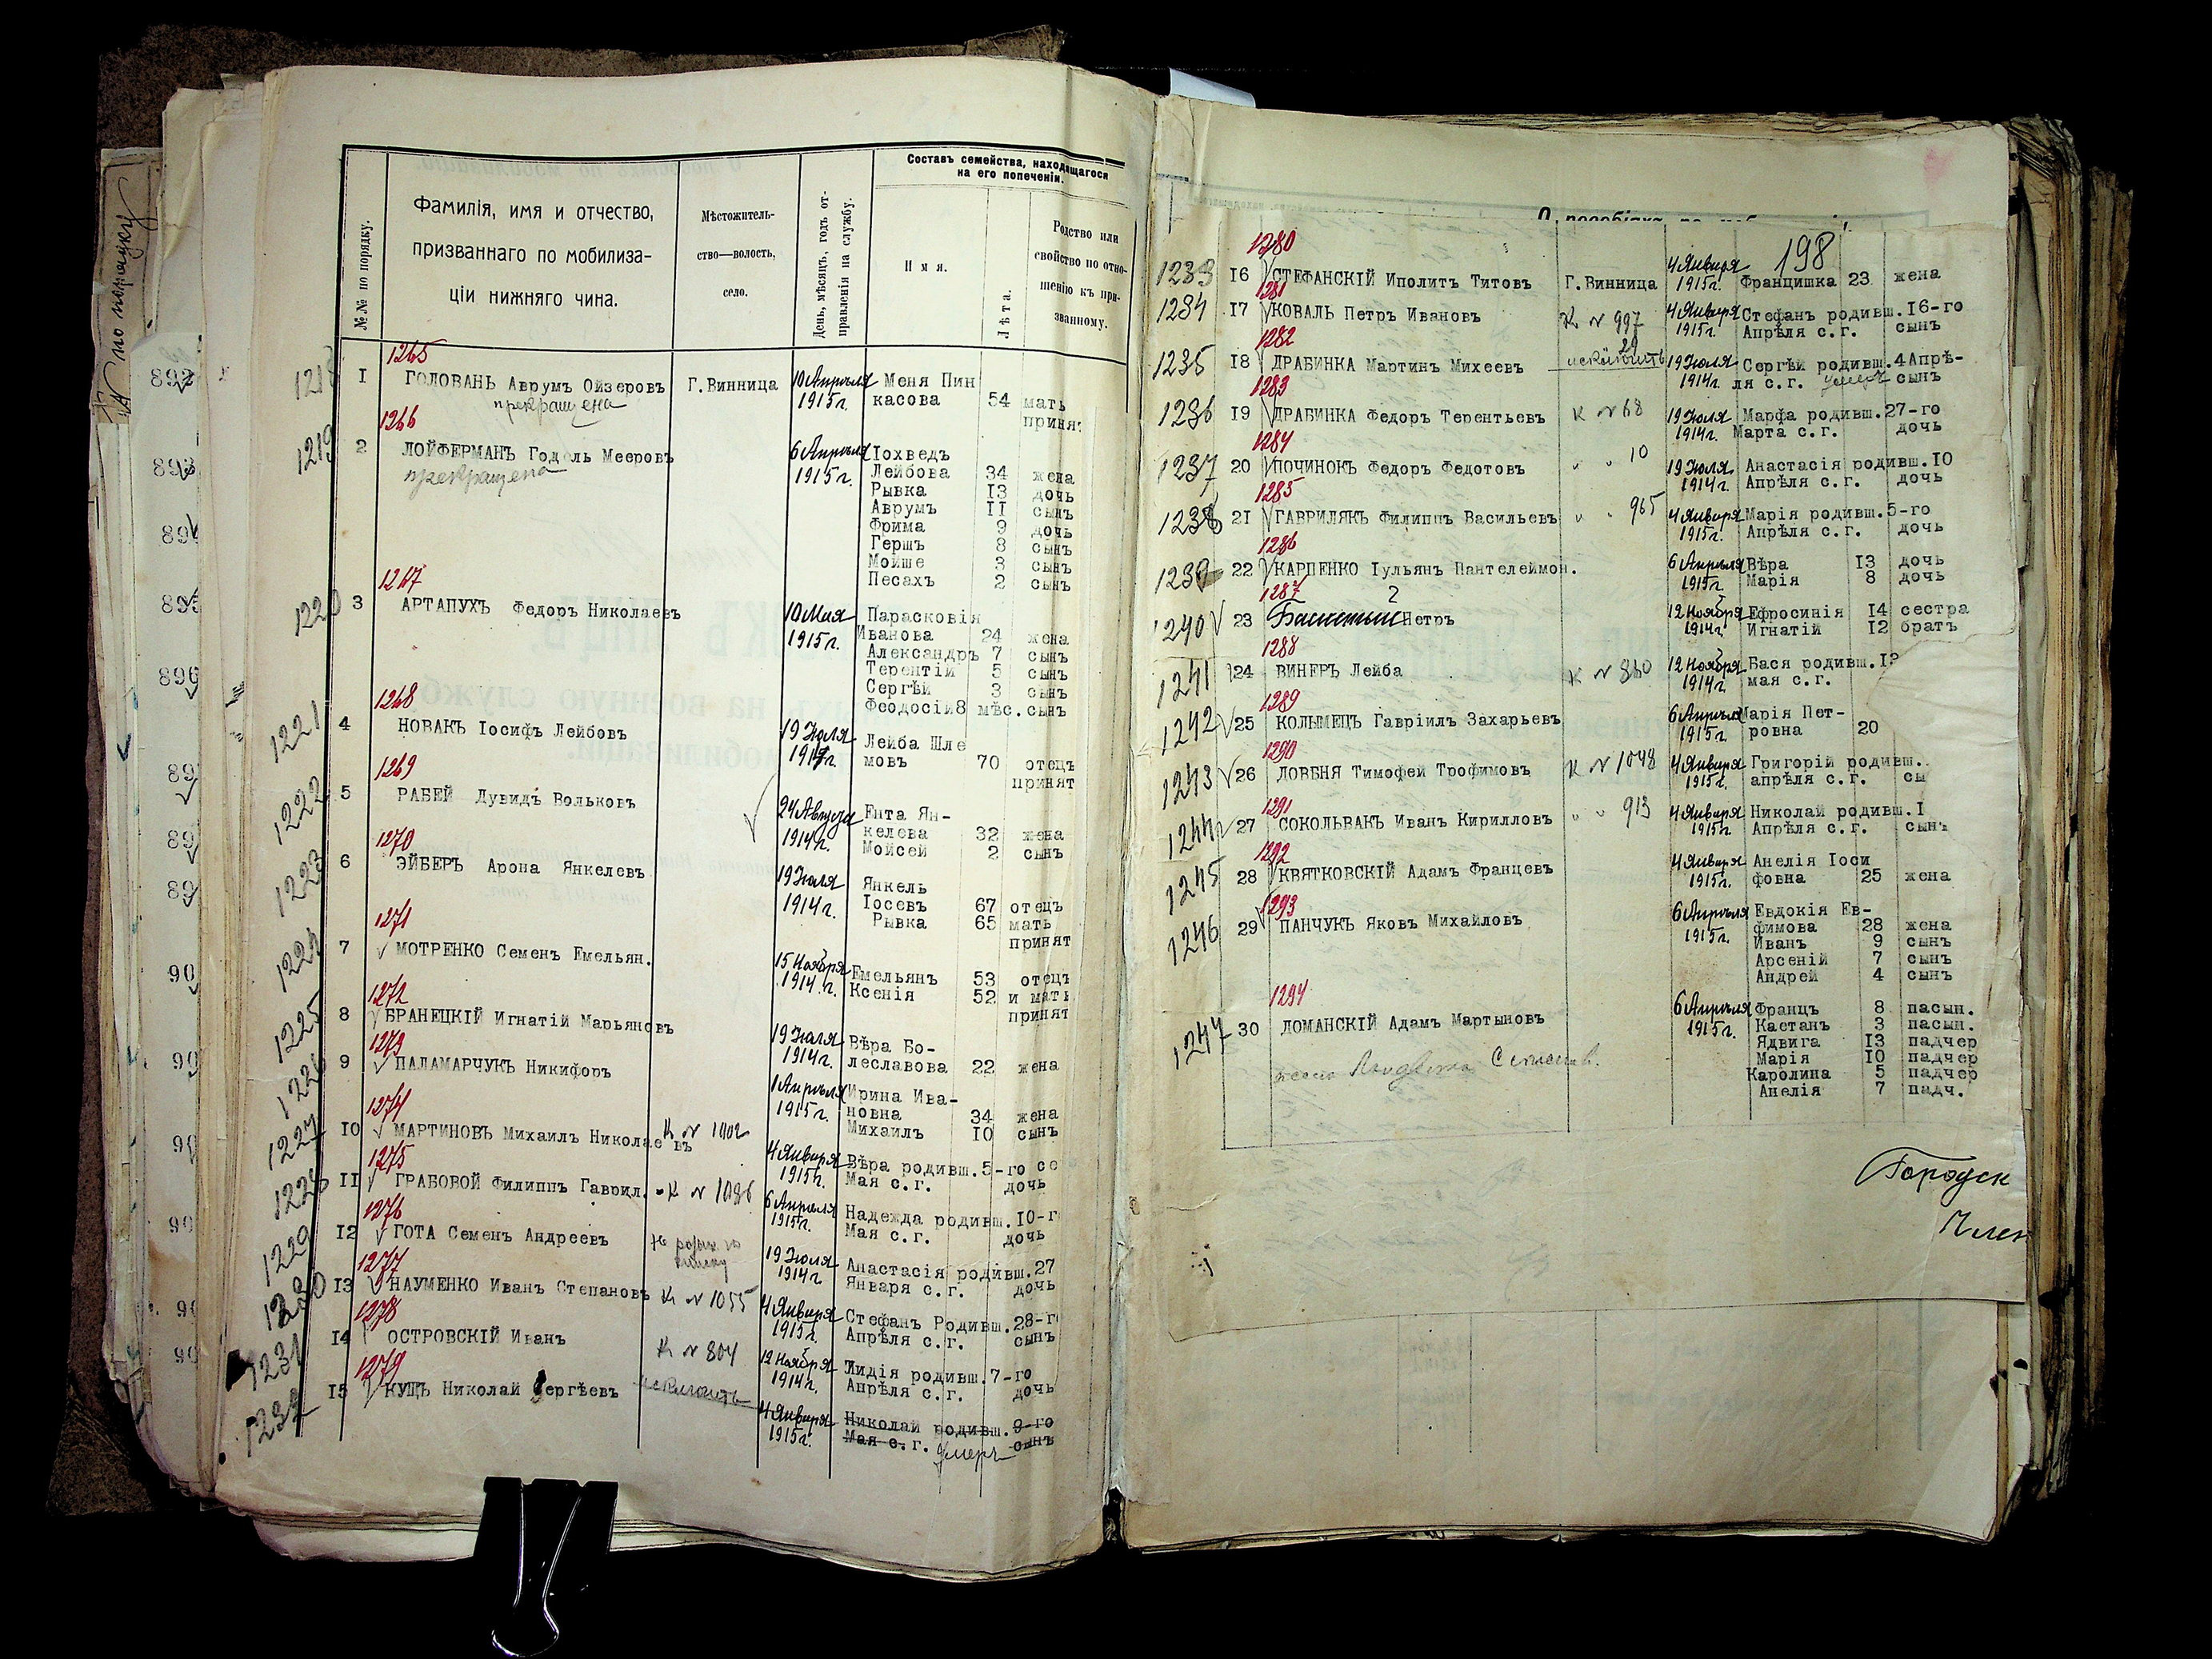 Фамилія, имя и отчество,
призваннаго по мобилиза-
ціи нижняго чина.
№№ по порядку.
Мѣстожитель-
ство—волость,
село.
День, мѣсяцъ, годъ от-
правленія на службу.
Составъ семейства, находящагося
на его попеченіи.
Имя.
Лѣта.
Родство или
свойство по отно-
шенію къ при-
званному.
1265
1 ГОЛОВАНЬ Аврумъ Ойзеровъ Г.Винница 10 Апрѣля Меня Пин
прекращена 1915 г. касова 54 мать
принят
1266
1219 2 ЛОЙФЕРМАНЪ Годель Мееровъ 6 Апрѣля Іохведъ
прекращена 1915 г. Лейбова 34 жена
Рывка 13 дочь
Аврумъ 11 сынъ
Фрима 9 дочь
Гершъ 8 сынъ
Мойше 3 сынъ
Песахъ 2 сынъ
1267
1220 3 АРТАПУХЪ Федоръ Николаевъ 10 Мая Парасковія
1915 г. Иванова 24 жена
Александръ 7 сынъ
Терентій 5 сынъ
Сергѣй 3 сынъ
Феодосій 8 мѣс. сынъ
1268
1221 4 НОВАКЪ Іосифъ Лейбовъ 19 Іюля Лейба Шле
1914 г. мовъ 70 отецъ
принят
1269
1222 5 РАБЕЙ Дувидъ Вольковъ 24 Августа Ента Ян-
1914 г. келева 32 жена
Мойсей 2 сынъ
1270
1223 6 ЭЙБЕРЪ Арона Янкелевъ 19 Іюля Янкель
1914 г. Іосевъ 67 отецъ
Рывка 65 мать
принят
1271
1224 7 МОТРЕНКО Семенъ Емельян. 15 Ноября Емельянъ 53 отецъ
1914 г. Ксенія 52 и мать
принят
1272
1225 8 БРАНЕЦКІЙ Игнатій Марьяновъ 19 Іюля Вѣра Бо-
1914 г. леславова 22 жена
1273
1226 9 ПАЛАМАРЧУКЪ Никифоръ 1 Апрѣля Ирина Ива-
1915 г. новна 34 жена
Михаилъ 10 сынъ
1274
1227 10 МАРТИНОВЪ Михаилъ Николаевъ К № 1002 4 Января Вѣра родивш. 5-го се
1915 г. Мая с.г. дочь
1275
1228 11 ГРАБОВОЙ Филиппъ Гаврил. К № 1086 6 Апрѣля Надежда родивш. 10-г
1915 г. Мая с.г. дочь
1276
1229 12 ГОТА Семенъ Андреевъ 19 Іюля Анастасія родивш. 27
1914 г. Января с.г. дочь
1277
1230 13 НАУМЕНКО Иванъ Степановъ К № 1055 4 Января Стефанъ Родивш. 28-г
1915 г. Апрѣля с.г. сынъ
1278
1231 14 ОСТРОВСКІЙ Иванъ К № 804 12 Ноября Лидія родивш. 7-го
1914 г. Апрѣля с.г. дочь
1279
1232 15 КУЩЪ Николай Сергѣевъ исключить 4 Января Николай родивш. 9-го
1915 г. Мая с.г. умеръ сынъ
198
1280
1233 16 СТЕФАНСКІЙ Иполитъ Титовъ Г.Винница 4 Января 1915 г. Францишка 23 жена
1281
1234 17 КОВАЛЬ Петръ Ивановъ К № 997 4 Января Стефанъ родивш. 16-го
1915 г. Апрѣля с.г. сынъ
1282
1235 18 ДРАБИНКА Мартинъ Михеевъ исключить 19 Іюля Сергѣй родивш. 4 Апрѣ-
1914 г. ля с.г. умеръ сынъ
1283
1236 19 ДРАБИНКА Федоръ Терентьевъ К № 68 19 Іюля Марфа родивш. 27-го
1914 г. Марта с.г. дочь
1284
1237 20 ПОЧИНОКЪ Федоръ Федотовъ " " 10 19 Іюля Анастасія родивш. 10
1914 г. Апрѣля с.г. дочь
1285
1238 21 ГАВРИЛЯКЪ Филиппъ Васильевъ " " 965 4 Января Марія родивш. 5-го
1915 г. Апрѣля с.г. дочь
1286
1239 22 КАРПЕНКО Іульянъ Пантелеймон. 6 Апрѣля Вѣра 13 дочь
1915 г. Марія 8 дочь
1287
1240 23 Петръ 12 Ноября Ефросинія 14 сестра
1914 г. Игнатій 12 братъ
1288
1241 24 ВИНЕРЪ Лейба К № 860 12 Ноября Бася родивш. 13
1914 г. мая с.г.
1289
1242 25 КОЛЫМЕЦЪ Гавріилъ Захарьевъ 6 Апрѣля Марія Пет-
1915 г. ровна 20
1290
1243 26 ЛОВБНЯ Тимофей Трофимовъ К № 1048 4 Января Григорій родивш.
1915 г. апрѣля с.г. сы
1291
1244 27 СОКОЛЬВАКЪ Иванъ Кирилловъ " " 913 4 Января Николай родивш. 1
1915 г. Апрѣля с.г. сынъ
1292
1245 28 КВЯТКОВСКІЙ Адамъ Францевъ 4 Января Анелія Іоси
1915 г. фовна 25 жена
1293
1246 29 ПАНЧУКЪ Яковъ Михайловъ 6 Апрѣля Евдокія Ев-
1915 г. фимова 28 жена
Иванъ 9 сынъ
Арсеній 7 сынъ
Андрей 4 сынъ
1294
1247 30 ДОМАНСКІЙ Адамъ Мартыновъ 6 Апрѣля Францъ 8 пасын.
1915 г. Каетанъ 3 пасын.
Ядвига 13 падчер
Марія 10 падчер
Каролина 5 падчер
Анелія 7 падч.
Городск
Член